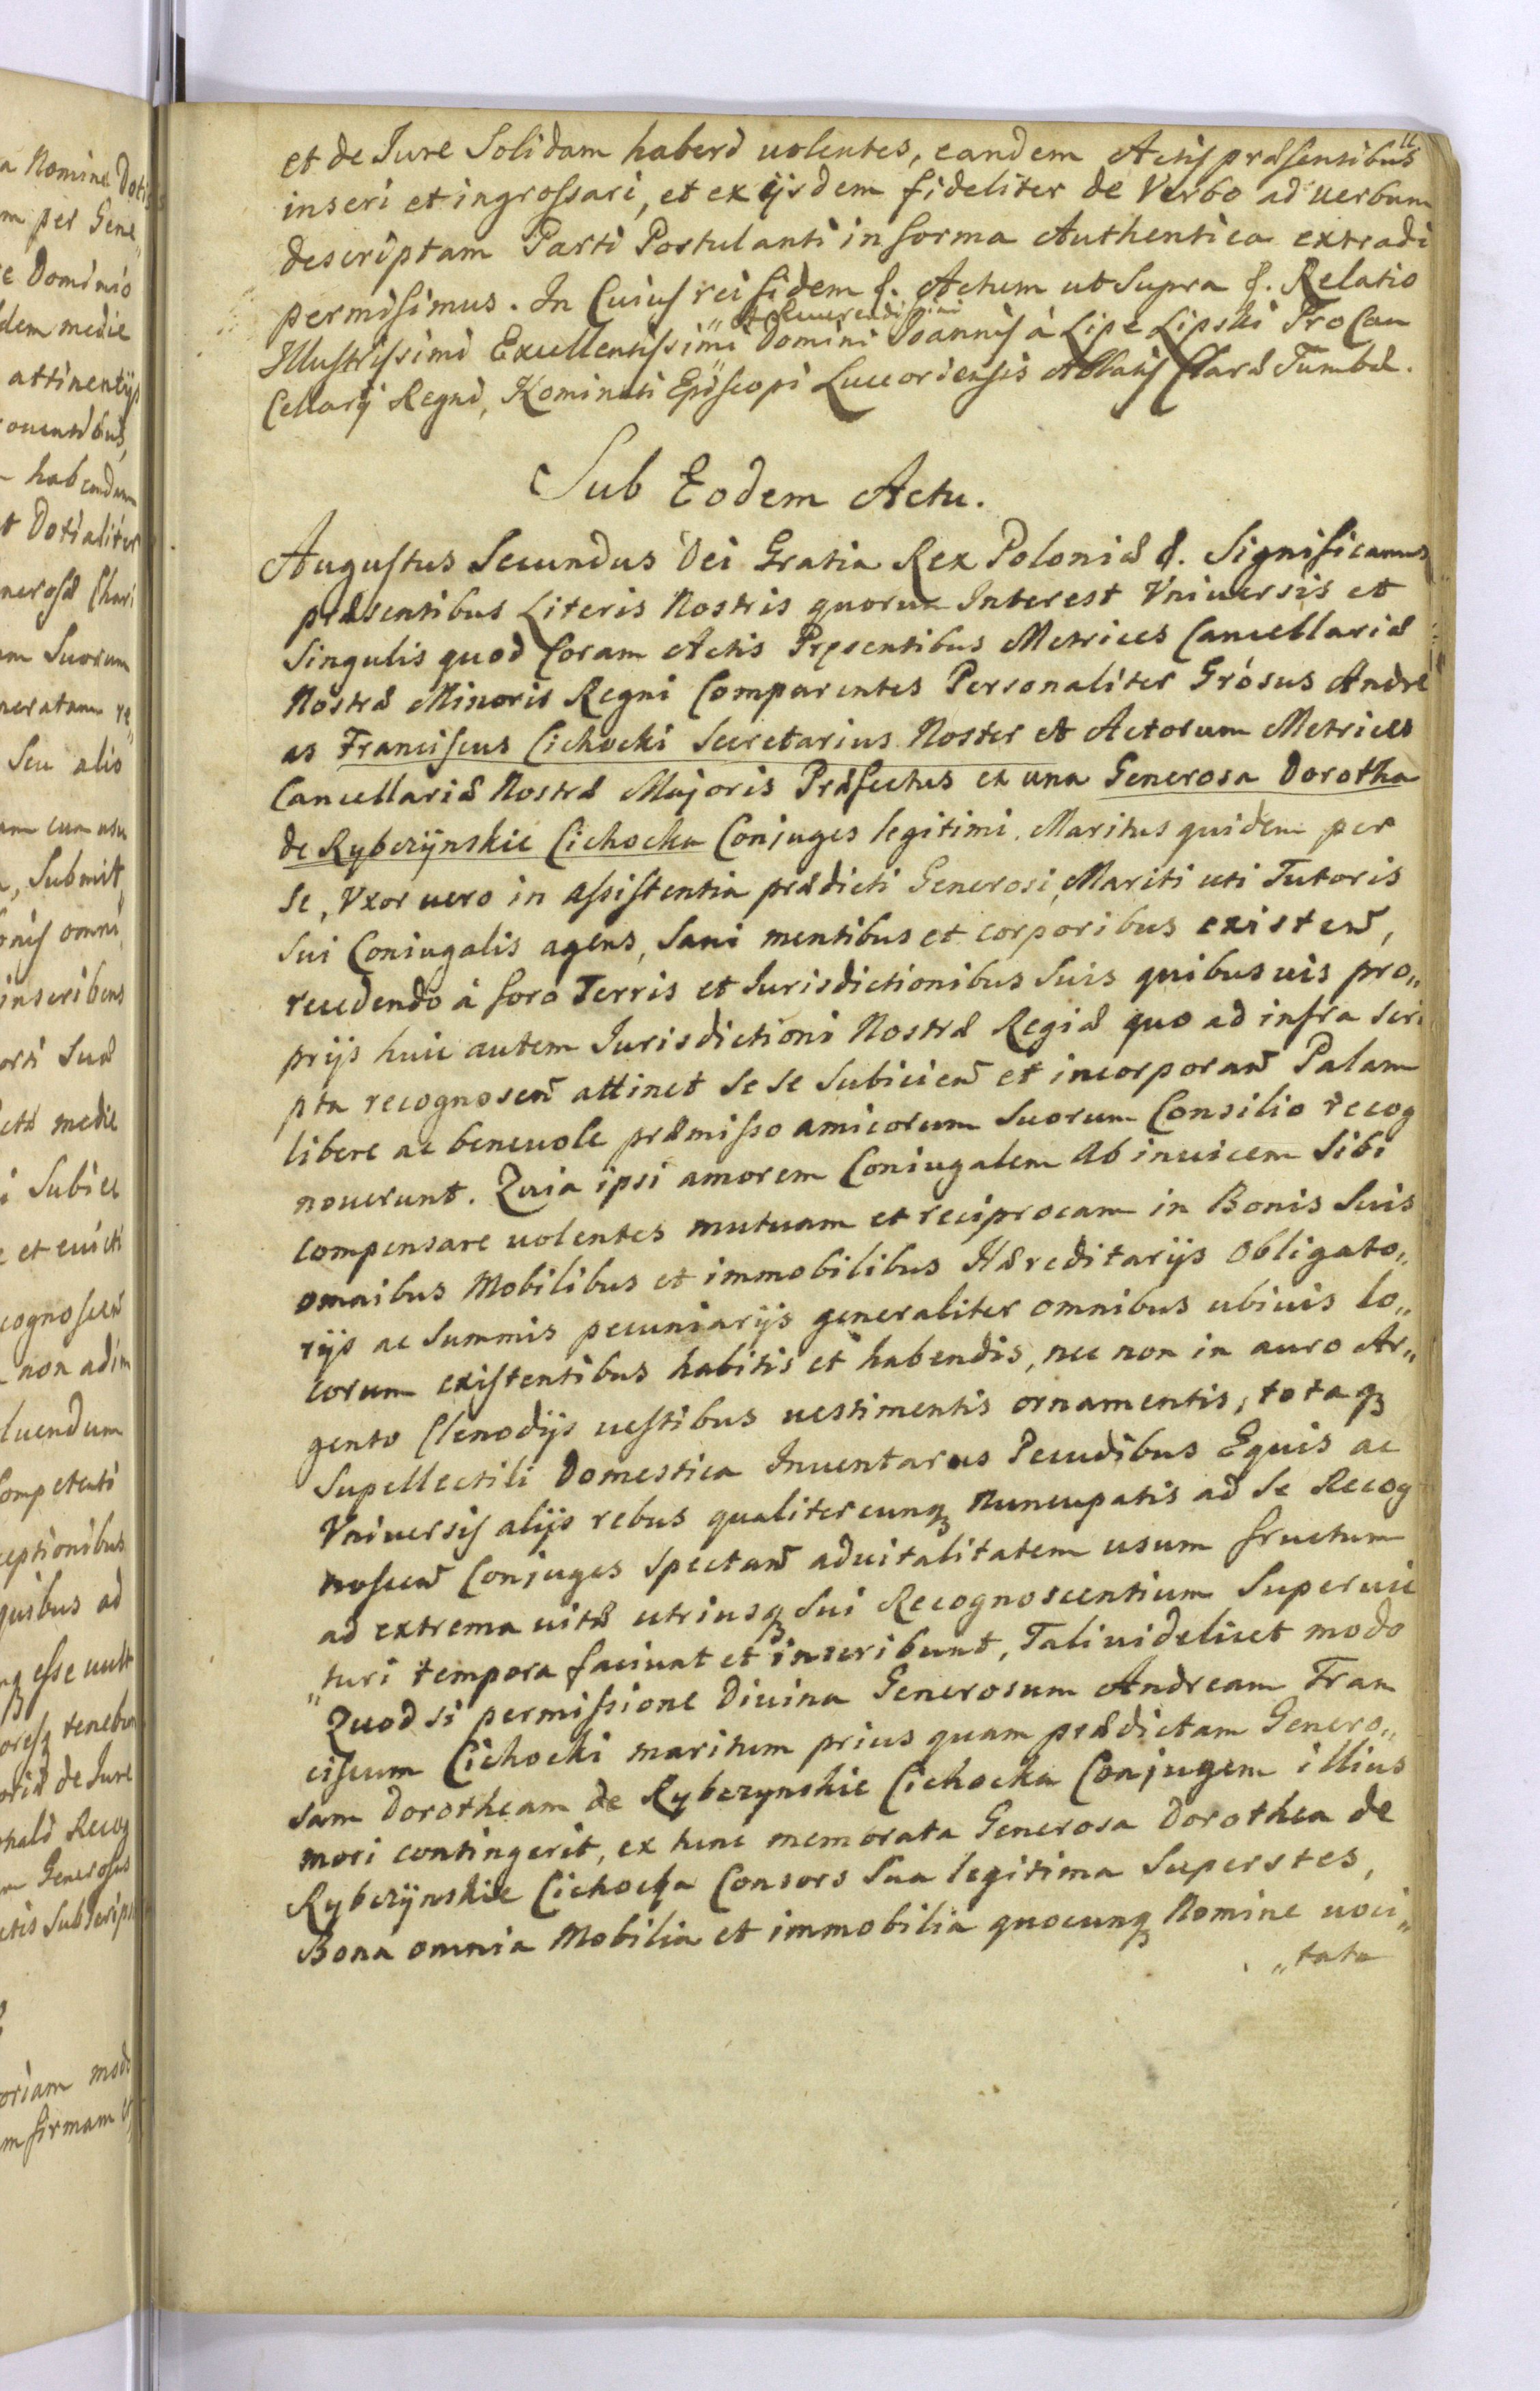 et de Iure Solidam haberi uolentes, eandem Actis præsentibus
inseri et ingrossari, et ex ijsdem fideliter de Verbo ad uerbum
descriptam Parti Postulanti in forma Authentica extradi
permisimus. In Cuius rei fidem &. Actum ut Supra &. Relatio
et Reuerendissimi
Illustrissimi Excellentissimi Domini Joannis à Lipe Lipski ProCan
Cellarij Regni, Nominati Episcopi Lucceoriensis Abbatis Claræ Tumbæ.
Sub Eodem Actu.
Augustus Secundus Dei Gratia Rex Poloniæ &. Significamus
præsentibus Literis Nostris quorum Interest Vniuersis et
Singulis quod Coram Actis Pręsentibus Metrices Cancellariæ
Nostræ Minoris Regni Comparentes Personaliter Grosus Andre
as Franciscus Cichocki Secretarius Noster et Actorum Metrices
Cancellariæ Nostræ Majoris Præfectus et una Generosa Dorotha
de Rybczÿnskie Cichocka Conjuges legitimi, Maritus quidem per
se, Vxor uero in assistentia prædicti Generosi Mariti uti Tutoris
sui Coniugalis agens, Sani mentibus et corporibus existen̄,
recedendo à foro Terris et Iurisdictionibus Suis quibusuis pro„
prijs huic autem Iurisdictioni Nostræ Regiæ quo ad infra scri
pta recognoscen̄ attinet se se Subicien̄ et incorporan̄ Palam
libere ac beneuole præmisso amicorum Suorum Consilio recog
nouerunt. Quia ipsi amorem Coniugalem ab inuicem Sibi
compensare uolentes mutuam et reciprocam in Bonis Suis
omnibus Mobilibus et immobilibus Hæreditarijs Obligato„
rijs ac Summis pecuniarijs generaliter omnibus ubiuis lo„
corum existentibus habitis et habendis, nec non in auro Ar„
gento Clenodijs uestibus uestimentis ornamentis, totaqꝫ
Supellectili Domestica Inuentar[...] Pecudibus Equis ac
Vniuersis alijs rebus qualitercunqꝫ Nuncupatis ad se Recog
noscen̄ Conjuges Spectan̄ aduitalitatem usum fructum
ad extrema uitæ utriusqꝫ Sui Recognoscentium Superuic
„turi tempora faciunt et inscribunt, Tali uidelicet modo
Quod si permissione Diuina Generosum Andream Fran
ciscum Cichocki maritum prius quam prædictam Genero„
sam Dorotheam de Rybczynskie Cichocka Conjugem illius
mori contingerit, ex tunc memorata Generosa Dorothea de
Rybczÿnskie Cichocka Consors Sua legitima Superstes,
Bona omnia Mobilia et immobilia quocunqꝫ Nomine uoci„
„tata